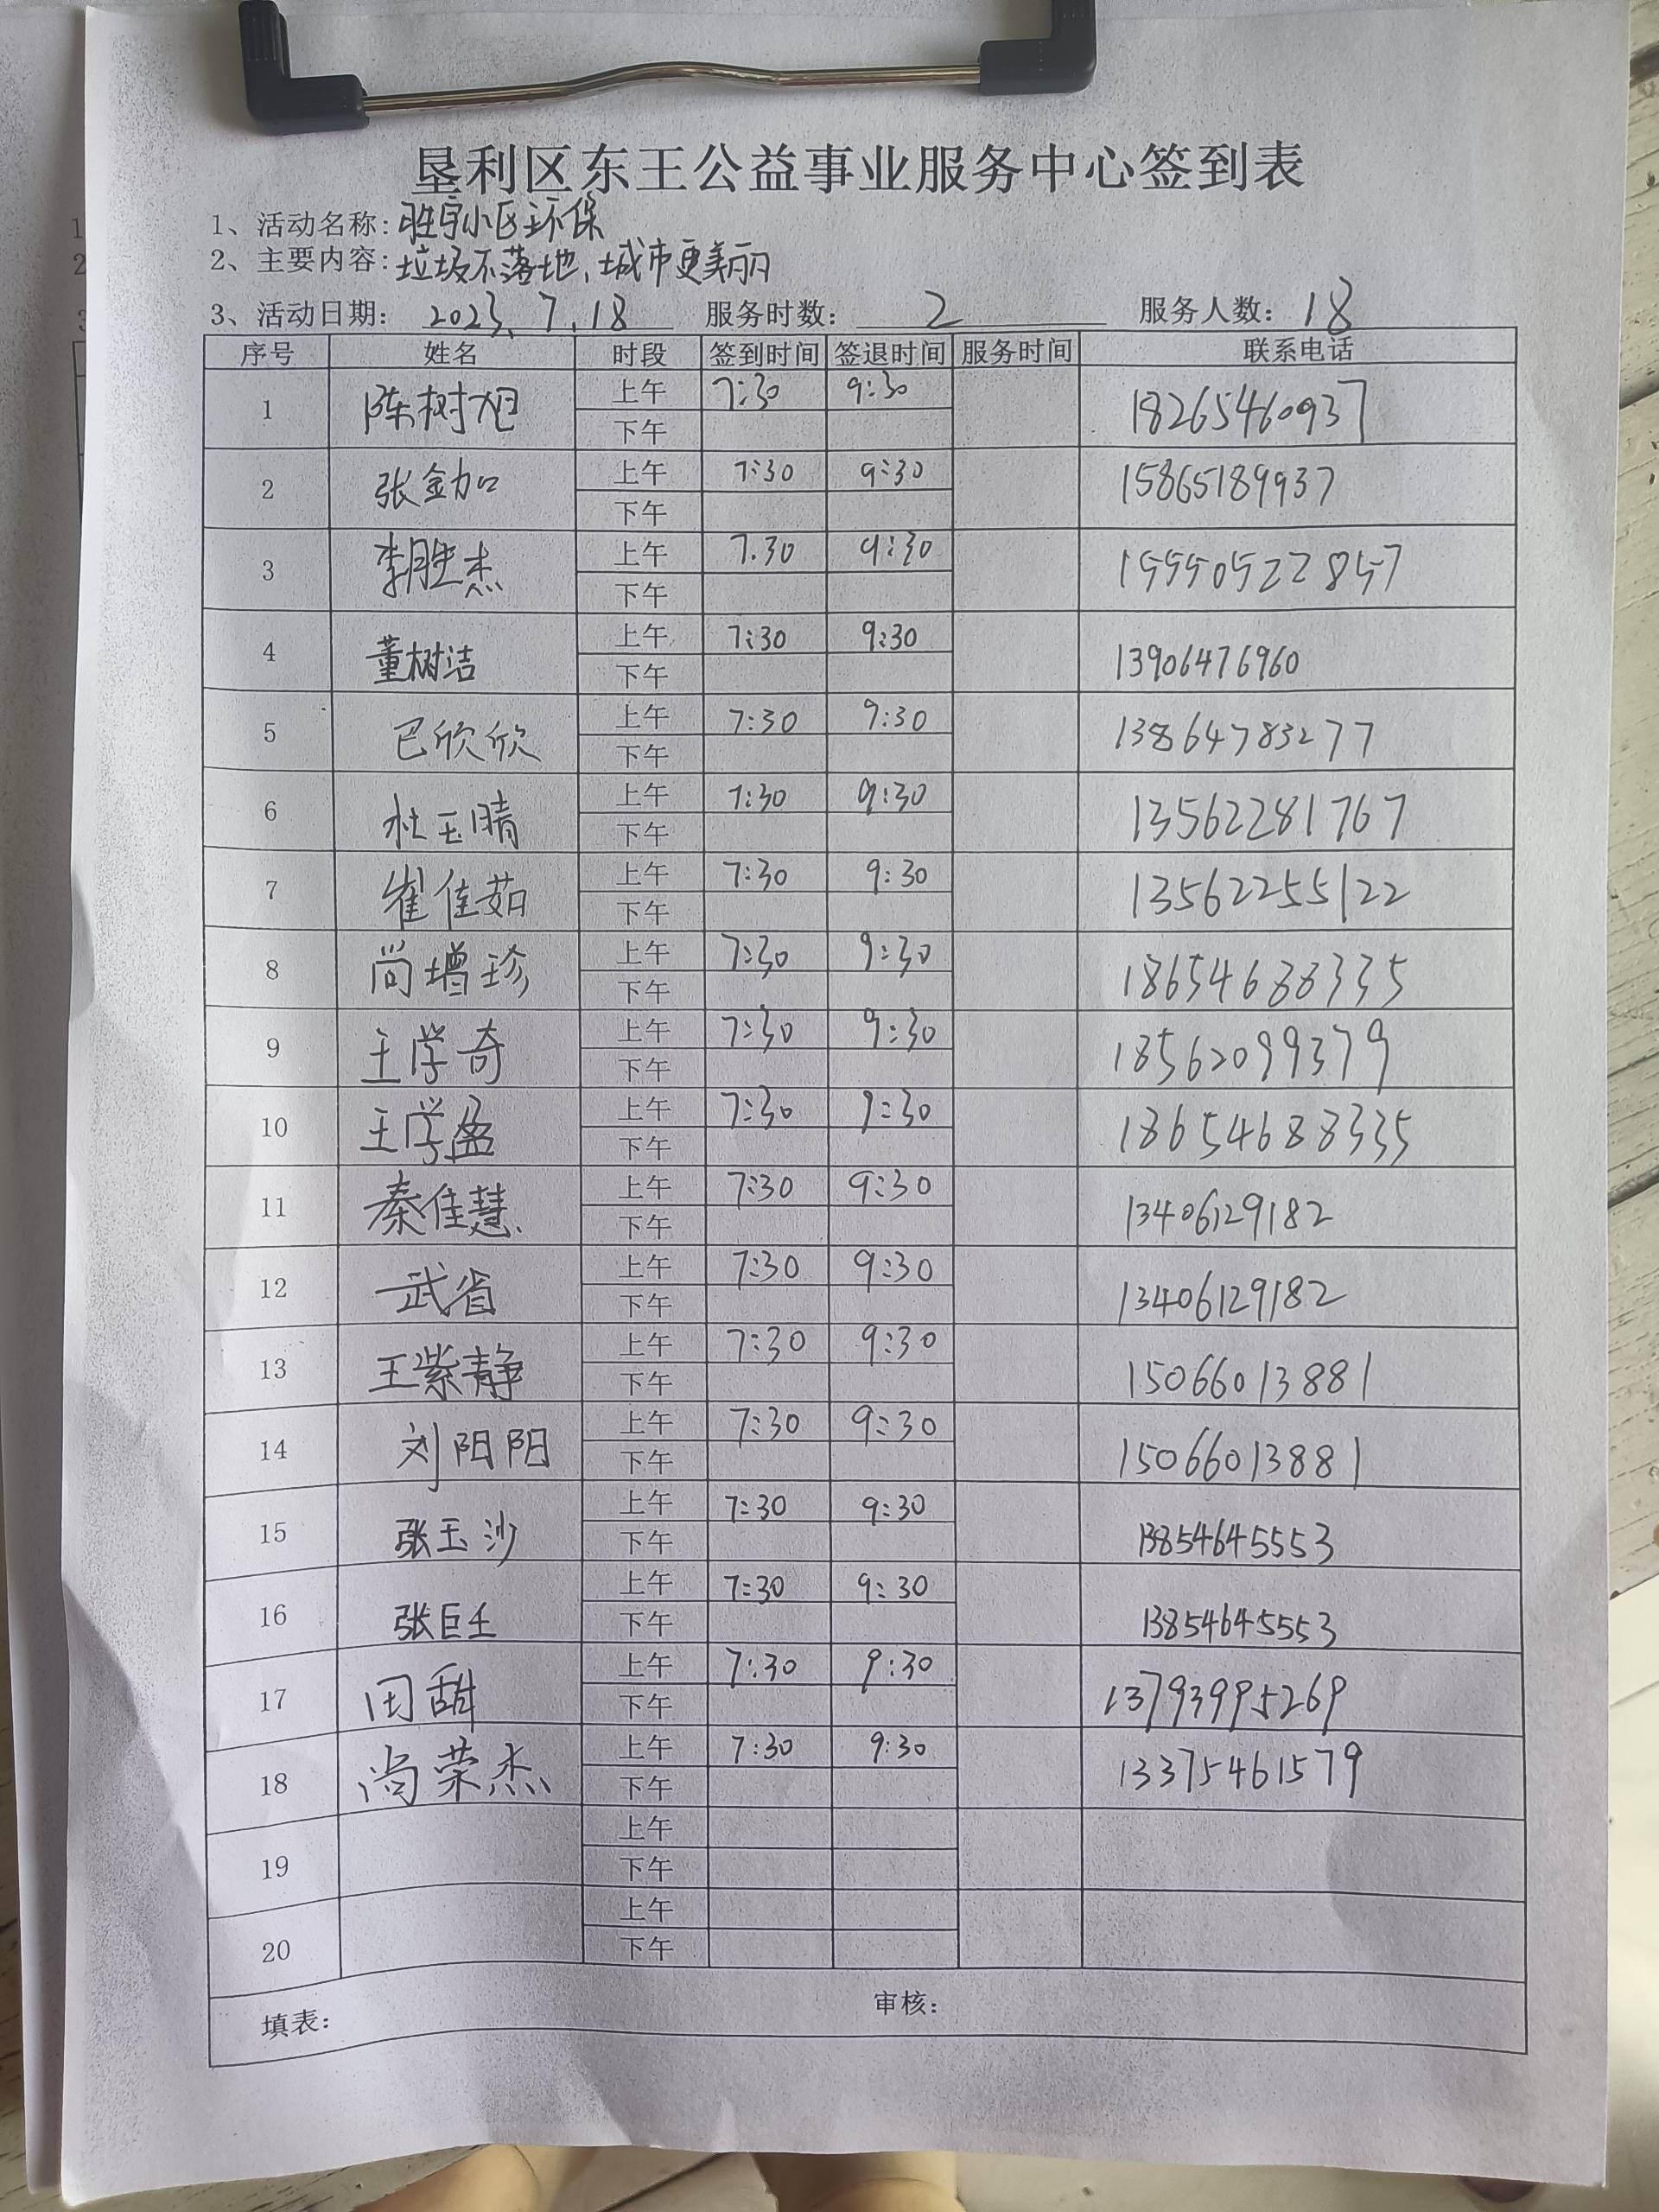 垦利区东王公益事业服务中心签到表
1、活动名称：胜宇小区环保
2、主要内容：垃圾不落地、城市更美丽
3、活动日期： 2023.7.18 服务时数： 2 服务人数： 18
序号 姓名 时段 签到时间 签退时间 服务时间 联系电话
1 陈树旭 上午 7:30 9:30 18265460937
下午
2 张金加 上午 7:30 9:30 15865189937
下午
3 李胜杰 上午 7.30 9:30 155505222857
下午
4 董树洁 上午 7:30 9:30 13906476960
下午
5 巴欣欣 上午 7:30 9:30 13864783277
下午
6 杜玉晴 上午 7:30 9:30 13562281767
下午
7 崔佳茹 上午 7:30 9:30 13562255122
下午
8 尚增珍 上午 7:30 9:30 18654688335
下午
9 王学奇 上午 7:30 9:30 18562099379
下午
10 王学盈 上午 7:30 9:30 18654688335
下午
11 秦佳慧 上午 7:30 9:30 13406129182
下午
12 武省 上午 7:30 9:30 13406129182
下午
13 王紫静 上午 7:30 9:30 15066013881
下午
14 刘阳阳 上午 7:30 9:30 15066013881
下午
15 张玉沙 上午 7:30 9:30 13854645553
下午
16 张巨壬 上午 7:30 9:30 13854645553
下午
17 田甜 上午 7:30 9:30 13793995269
下午
18 尚荣杰 上午 7:30 9:30 13375461579
下午
19 上午
下午
20 上午
下午
填表： 审核：